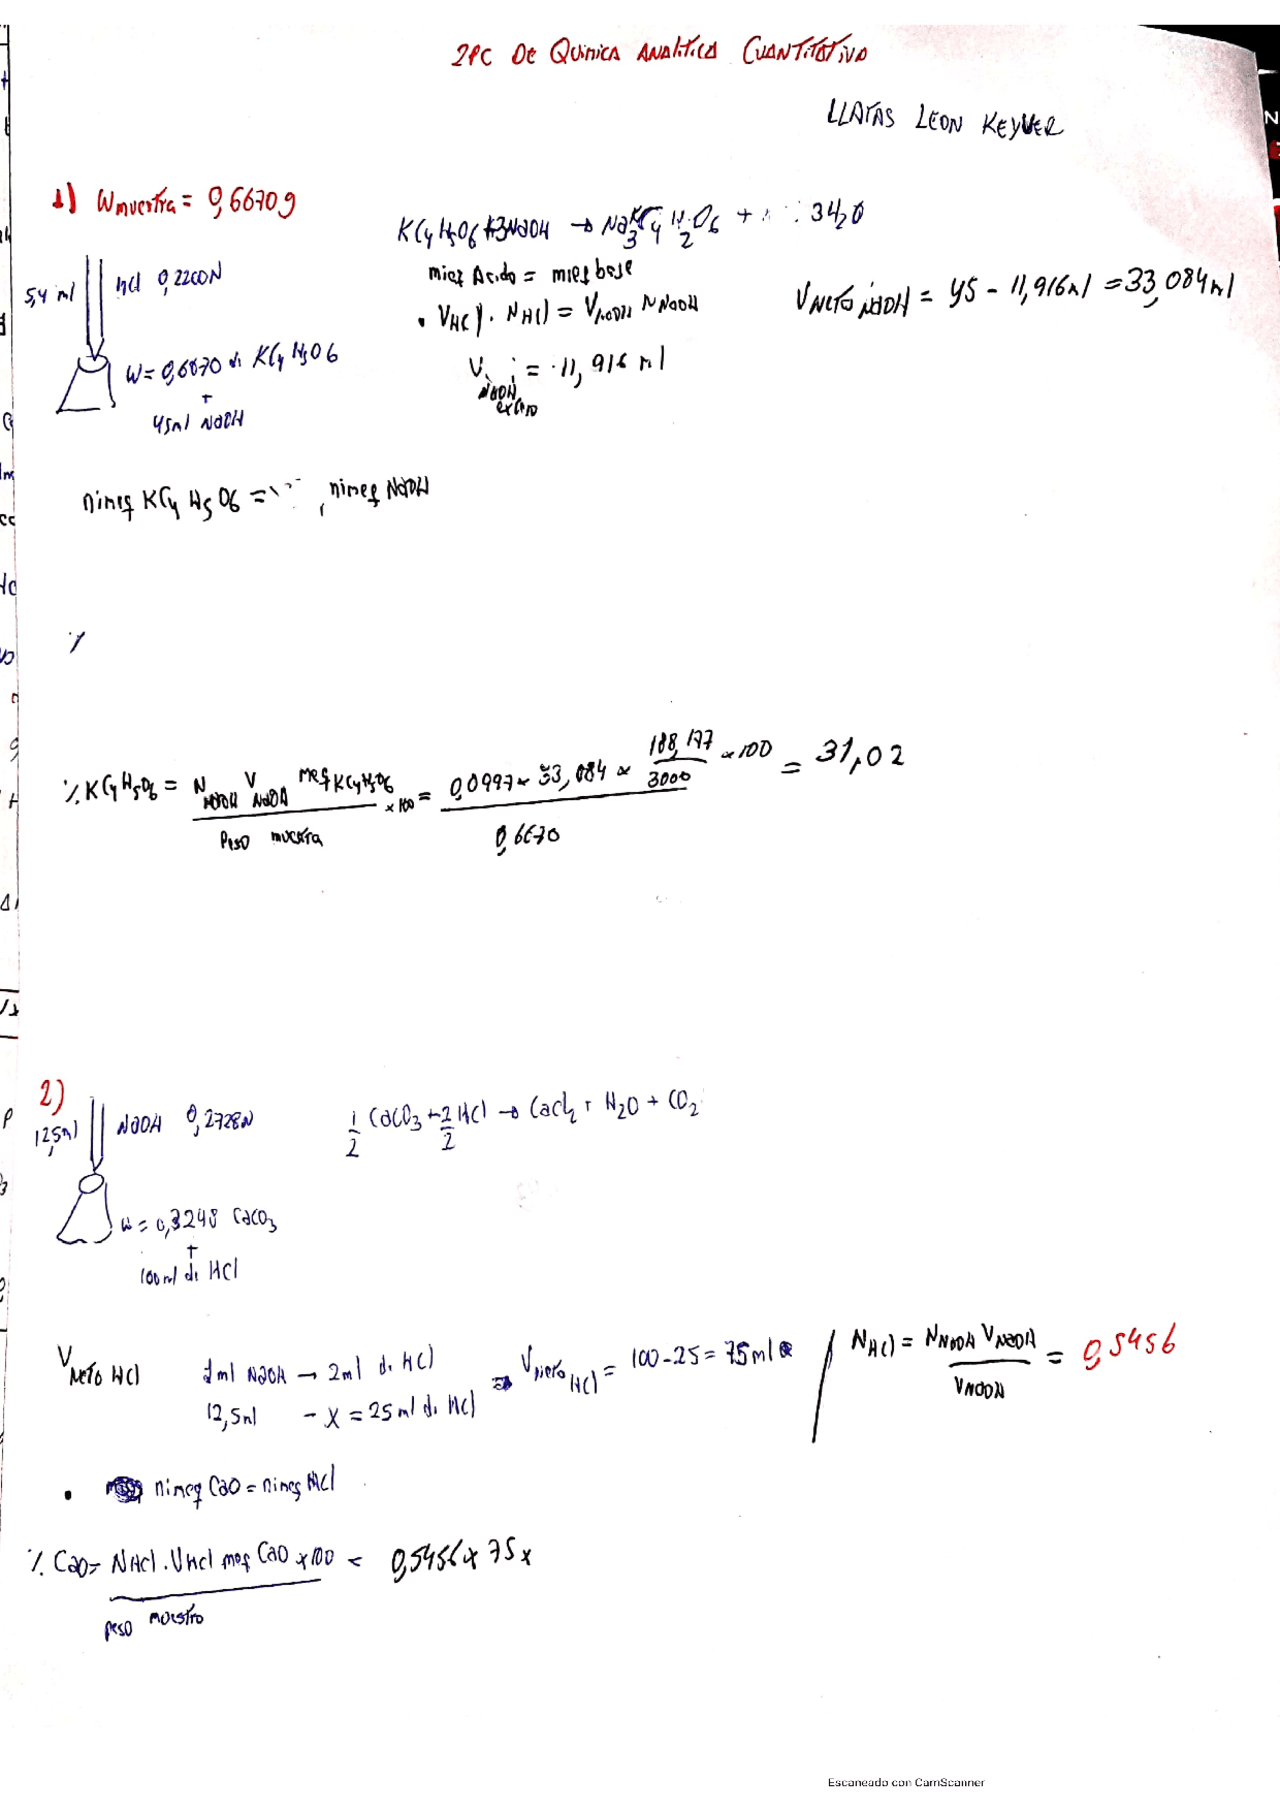 2PC De Quimica Analitica Cuantitativa
LLATAS LEON KEYVER
1) Wmuestra = 0,6670g
KC4H5O6 + 3NaOH → Na3KC4H2O6 + 3H2O
5,4 ml HCl 0,2200N
mieq Acido = mieq base
VNETO NaOH = 45 - 11,916ml = 33,084ml
• VHCl . NHCl = VNaOH NNaOH
W = 0,6670 de KC4H5O6
+
45ml NaOH
V NaOH exceso = 11,916 ml
nimeq KC4H5O6 = nimeq NaOH
% KC4H5O6 = NNaOH VNaOH meq KC4H5O6 x 100 / Peso muestra = 0,0997 x 33,084 x 188,177/3000 x 100 / 0,6670 = 31,02
2)
12,5ml NaOH 0,2728N
1/2 CaCO3 + 2/2 HCl → CaCl2 + H2O + CO2
W = 0,3248 CaCO3
+
100ml de HCl
VNETO HCl
1ml NaOH → 2ml de HCl
12,5ml - X = 25ml de HCl
⇒ VNeto HCl = 100 - 25 = 75ml
NHCl = NNaOH VNaOH / VNaOH = 0,5456
• nimeq CaO = nimeq HCl
% CaO = NHCl . VHCl meq CaO x 100 / peso muestra = 0,5456 x 75 x
Escaneado con CamScanner